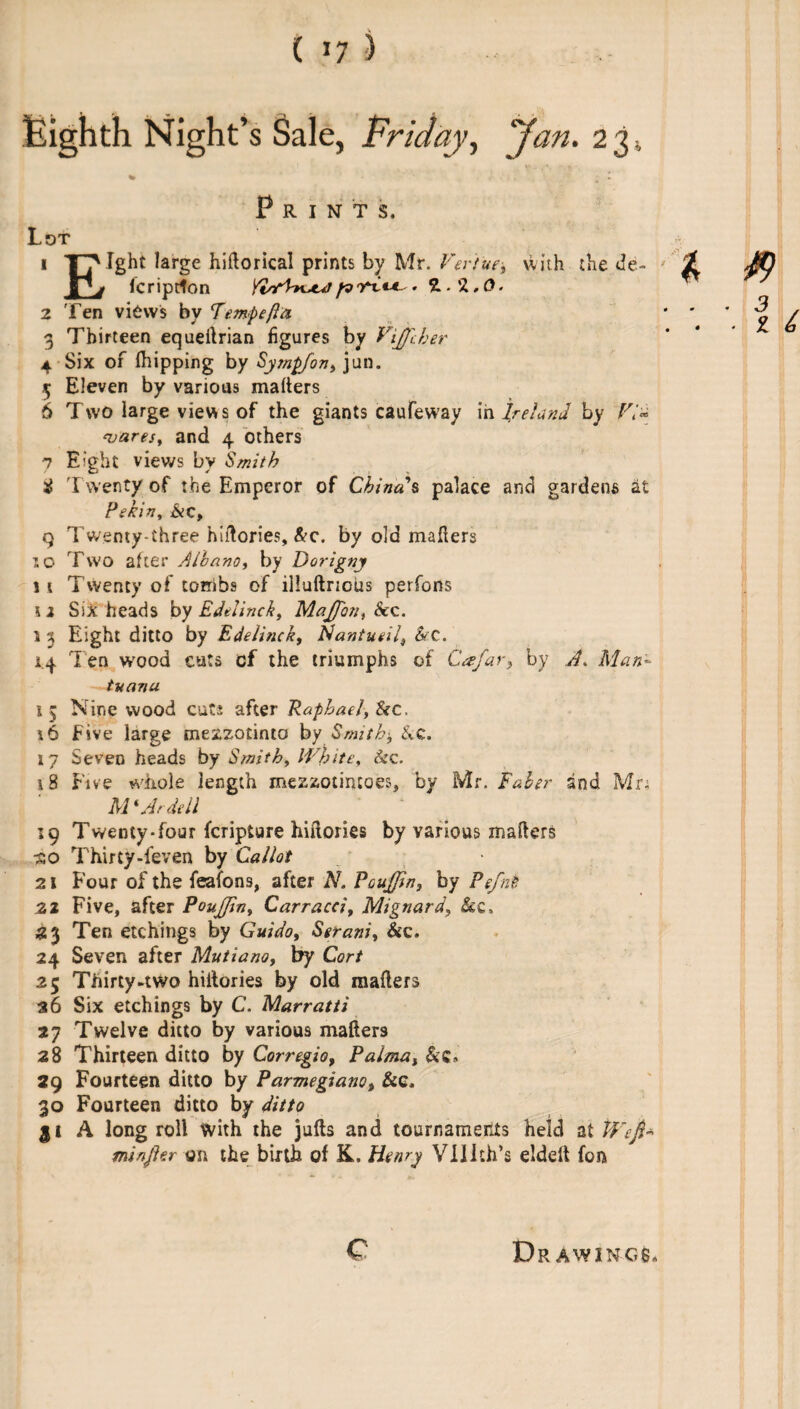 ( 17 )
Eighth Night's Sale, Friday, Jan. 23,
PRINTS.
LOT
1 EIght large hiſtorical prints by Mr. Vertue, with the de-
ſcription 2. 2. 0.
2 Ten views by Tempeſta
3 Thirteen equeſtrian figures by Viſſcher
4 Six of ſhipping by Sympſon, jun.
5 Eleven by various maſters
6 Two large views of the giants cauſeway in Ireland by Vi-
vares, and 4 others
7 Eight views by Smith
8 Twenty of the Emperor of China's palace and gardens at
Pekin, &c,
9 Twenty-three hiſtories, &c. by old maſters
10 Two after Albano, by Dorigny
11 Twenty of tombs of illuſtrious perſons
12 Six heads by Edelinck, Maſſon, &c.
13 Eight ditto by Edelinck, Nantueil, &c.
14 Ten wood cuts of the triumphs of Cæſar, by A. Man-
tuana
15 Nine wood cuts after Raphael, &c.
16 Five large mezzotinto by Smith, &c.
17 Seven heads by Smith, White, &c.
18 Five whole length mezzotintoes, by Mr. Faber and Mr.
M'Ardell
19 Twenty-four ſcripture hiſtories by various maſters
20 Thirty-ſeven by Callot
21 Four of the ſeaſons, after N. Pouſſin, by Peſne
22 Five, after Pouſſin, Carracci, Mignard, &c.
23 Ten etchings by Guido, Serani, &c.
24 Seven after Mutiano, by Cort
25 Thirty-two hiſtories by old maſters
26 Six etchings by C. Marratti
27 Twelve ditto by various maſters
28 Thirteen ditto by Corregio, Palma, &c.
29 Fourteen ditto by Parmegiano, &c.
30 Fourteen ditto by ditto
31 A long roll with the juſts and tournaments held at Weſt-
minſter on the birth of K. Henry VIIIth's eldeſt ſon
C DRAWINGS.